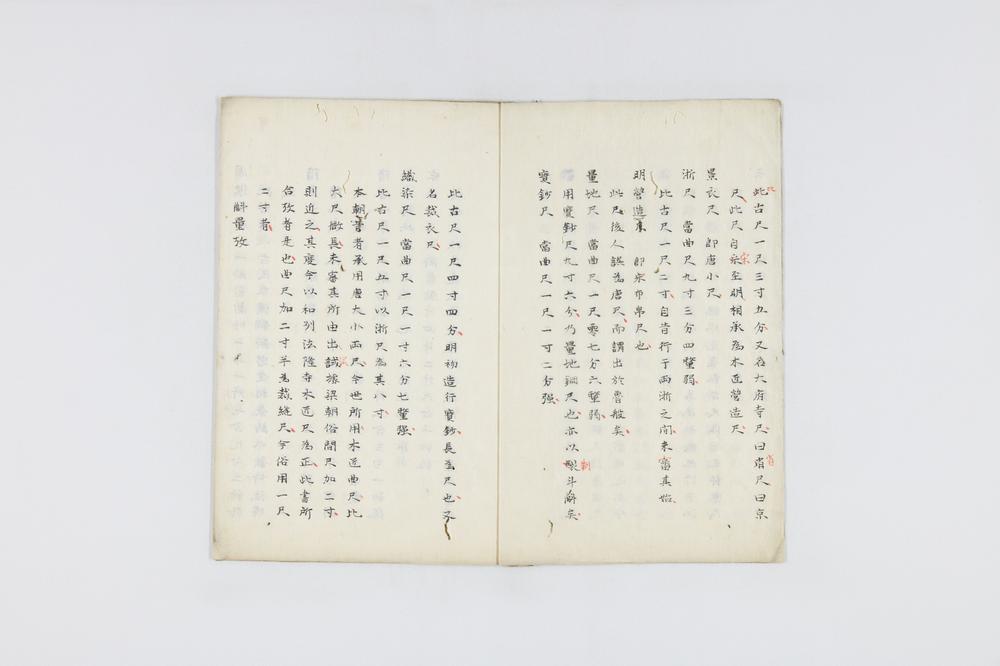 此古尺一尺三寸五分又名大府寺尺曰省尺曰京
尺此尺自宋至明相承為木匠營造尺
景表尺 即唐小尺
浙尺 當曲尺九寸三分四釐弱
比古尺一尺二寸自昔行于兩浙之間未審其始
明營造尺 即宋布帛尺也
此尺後人誤為唐尺而謂出於魯般矣
量地尺 當曲尺一尺零七分六釐弱
用寶鈔尺九寸六分乃量地銅尺也亦以制斗斛矣
寶鈔尺 當曲尺一尺一寸二分强
比古尺一尺四寸四分明初造行寶鈔長為尺也
名裁衣尺
織染尺 當曲尺一尺一寸六分七釐强
比古尺一尺五寸以浙尺為其八寸
本朝昔者承用唐大小兩尺今世所用木匠曲尺比
大尺微長未審其所由出試據梁朝俗間尺加二寸
則近之其度今以和列法隆寺木匠尺為正此書所
合攷者是也曲尺加二寸半為裁縫尺今俗用一尺
二寸者
斛量攷